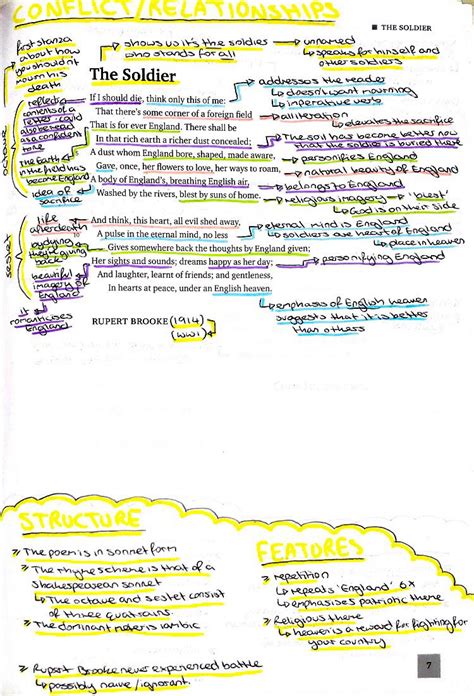 CONFLICT/RELATIONSHIPS
■ THE SOLDIER
first stanza about how you shouldn't mourn his death
shows us it's the soldiers who stands for all
unnamed
↳ speaks for himself and other soldiers
The Soldier
addresses the reader
↳ doesn't want mourning
↳ imperative verb
If I should die, think only this of me:
That there's some corner of a foreign field
That is for ever England. There shall be
In that rich earth a richer dust concealed;
A dust whom England bore, shaped, made aware,
Gave, once, her flowers to love, her ways to roam,
A body of England's, breathing English air,
Washed by the rivers, blest by suns of home.
octave
contents of a letter
as a confident tone
The Earth in the field has become England
idea of sacrifice
alliteration
↳ elevates the sacrifice
The soil has become better now that the soldier is buried there
personifies England
natural beauty of England
belongs to England
religious imagery → 'blest'
↳ God is on their side
And think, this heart, all evil shed away,
A pulse in the eternal mind, no less
Gives somewhere back the thoughts by England given;
Her sights and sounds; dreams happy as her day;
And laughter, learnt of friends; and gentleness,
In hearts at peace, under an English heaven.
sestet
life after death
by dying they're giving peace
beautiful imagery of England
it romanticises England
eternal mind is England
↳ soldiers are heart of England
↳ place in heaven
personifying England
emphasis of English heaven suggests that it is better than others
RUPERT BROOKE (1914)
(WW1)
STRUCTURE
The poem is in sonnet form
The rhyme scheme is that of a Shakespearean sonnet
↳ The octave and sestet consist of three quatrains.
The dominant meter is iambic
Rupert Brooke never experienced battle
↳ possibly naive/ignorant.
FEATURES
repetition
↳ repeats 'England' 6x
↳ emphasises patriotic theme
Religious theme
↳ heaven is a reward for fighting for your country
7